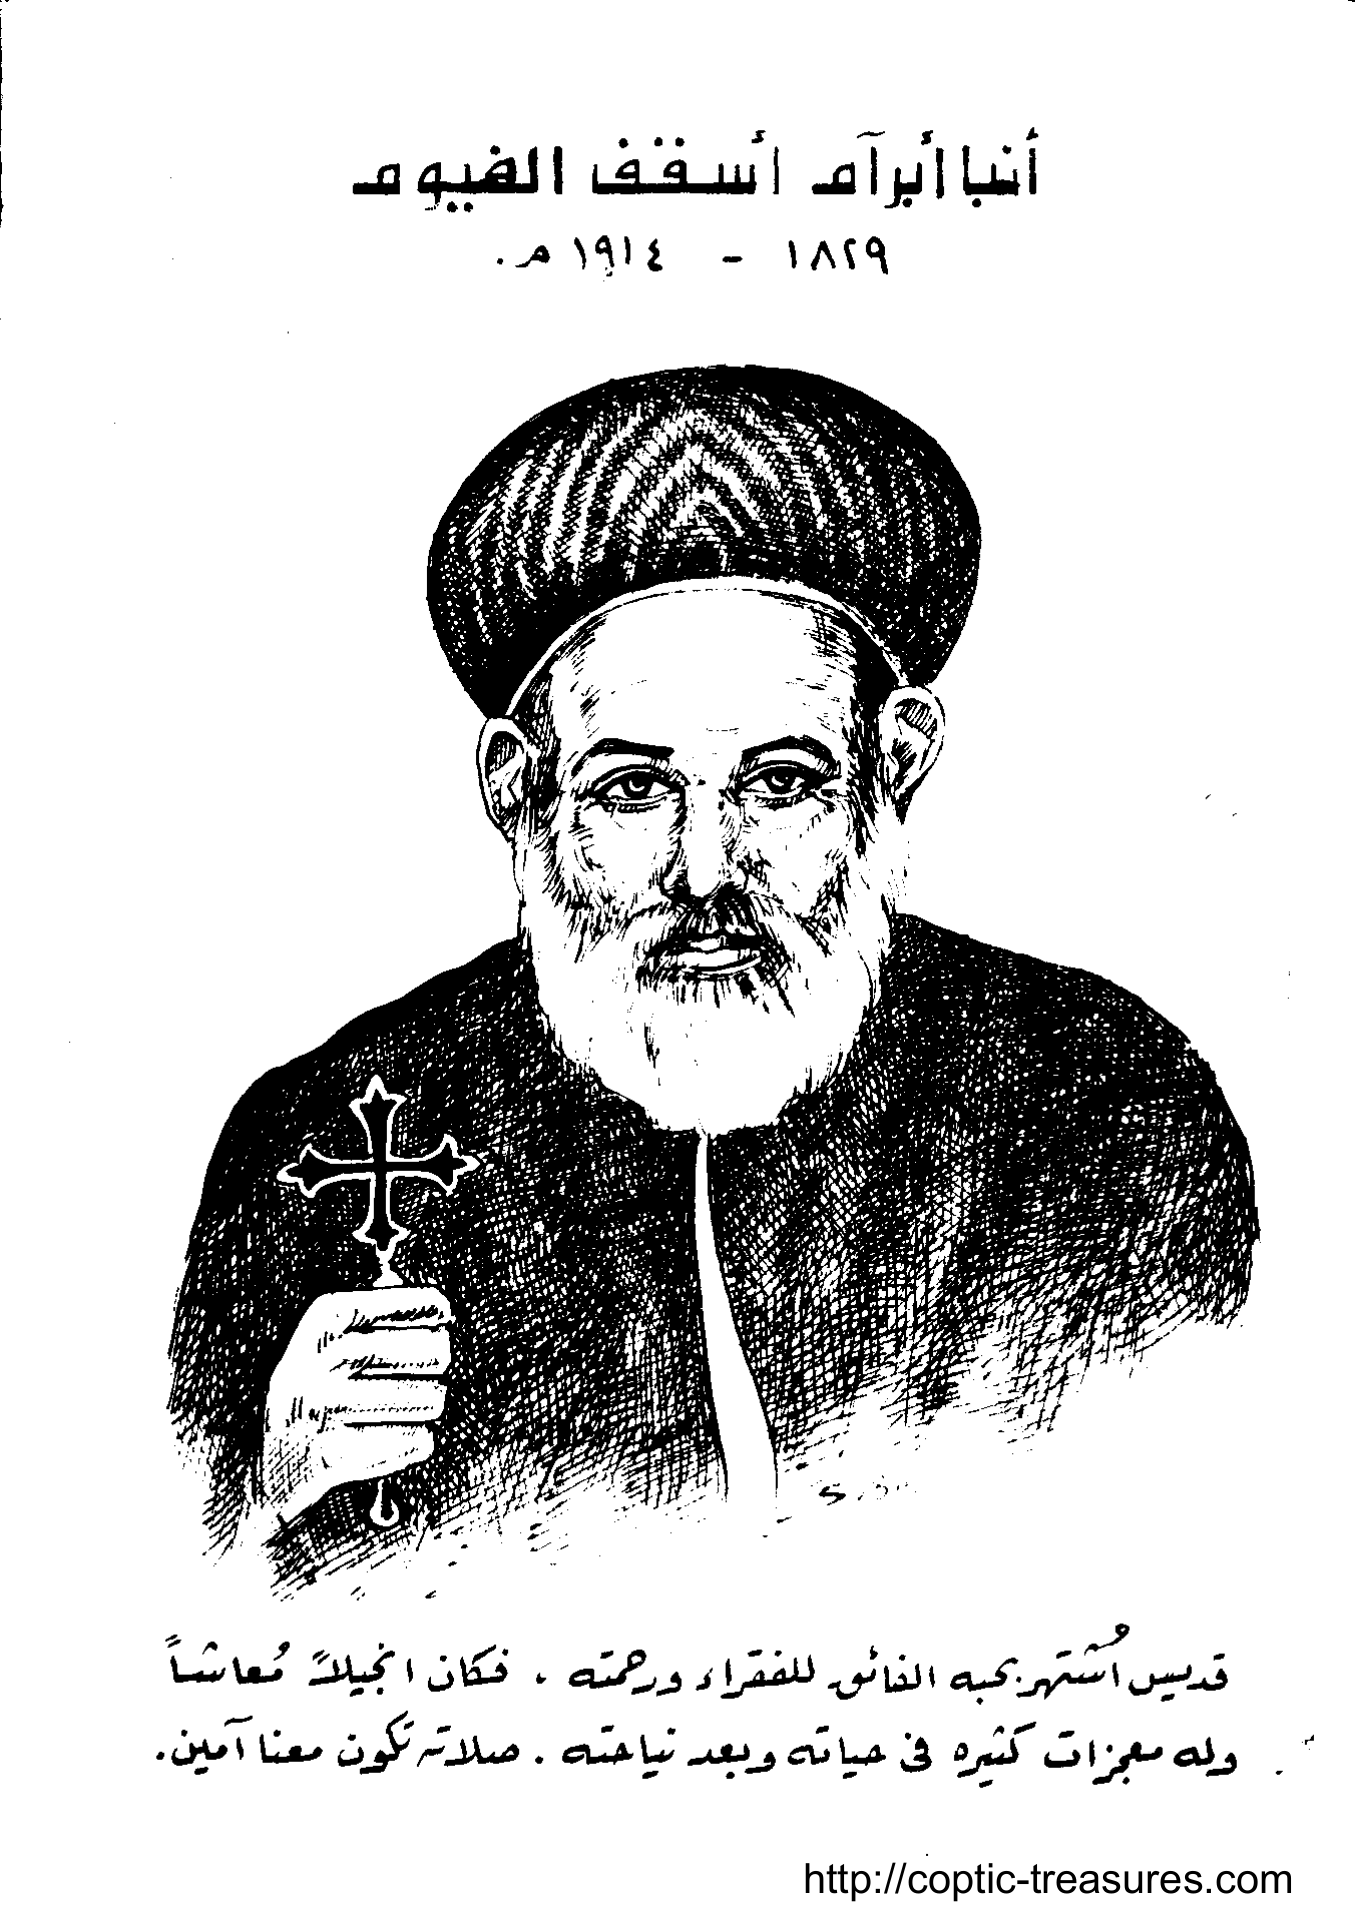 أنبا أبرآم أسقف الفيوم
١٨٢٩ - ١٩١٤ م.
قديس اُشتهر بحبه الفائق للفقراء ورحمته ، فكان انجيلاً مُعاشاً
وله معجزات كثيره فى حياته وبعد نياحته . صلاته تكون معنا آمين.
http://coptic-treasures.com